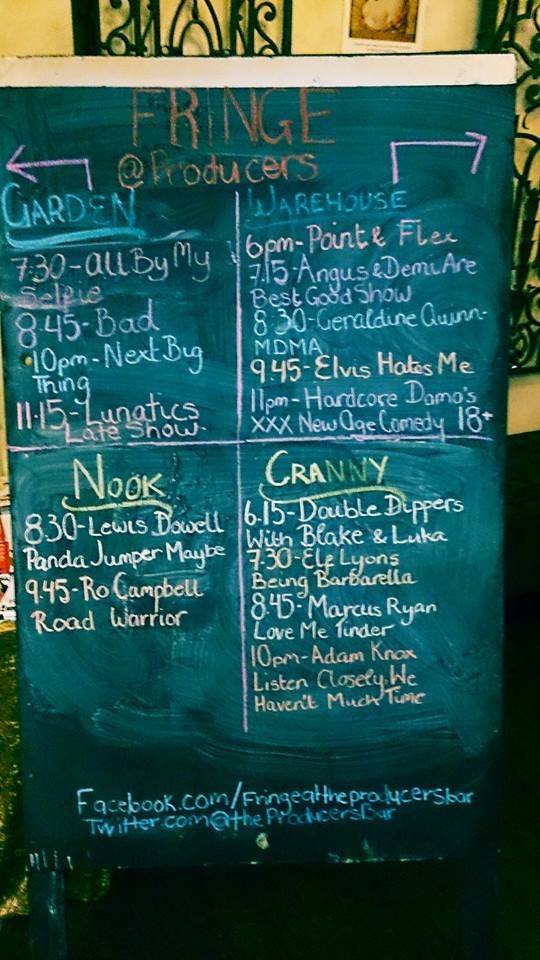 FRINGE
@Producers
GARDEN
7:30-All By My
Selfie
8.45-Bad
10pm-Next Big
Thing
11.15-Lunatics
Late Show.
WAREHOUSE
6pm-Point & Flex
7.15-Angus & Demi Are
Best Good Show
8 30-Geraldine Quinn-
MDMA
9.45-Elvis Hates Me
11pm-Hardcore Damo's
XXX New Age Comedy 18+
NOOK
8.30-Lewis Dowell
Panda Jumper Maybe
9.45-Ro Campbell
Road Warrior
CRANNY
6.15-Double Dippers
With Blake & Luka
7.30-Elf Lyons
Being Barbarella
8.45-Marcus Ryan
Love Me Tinder
10pm-Adam Knox
Listen Closely. We
Haven't Much Time
Facebook.com/Fringeattheproducersbar
Twitter.com@theProducersBar